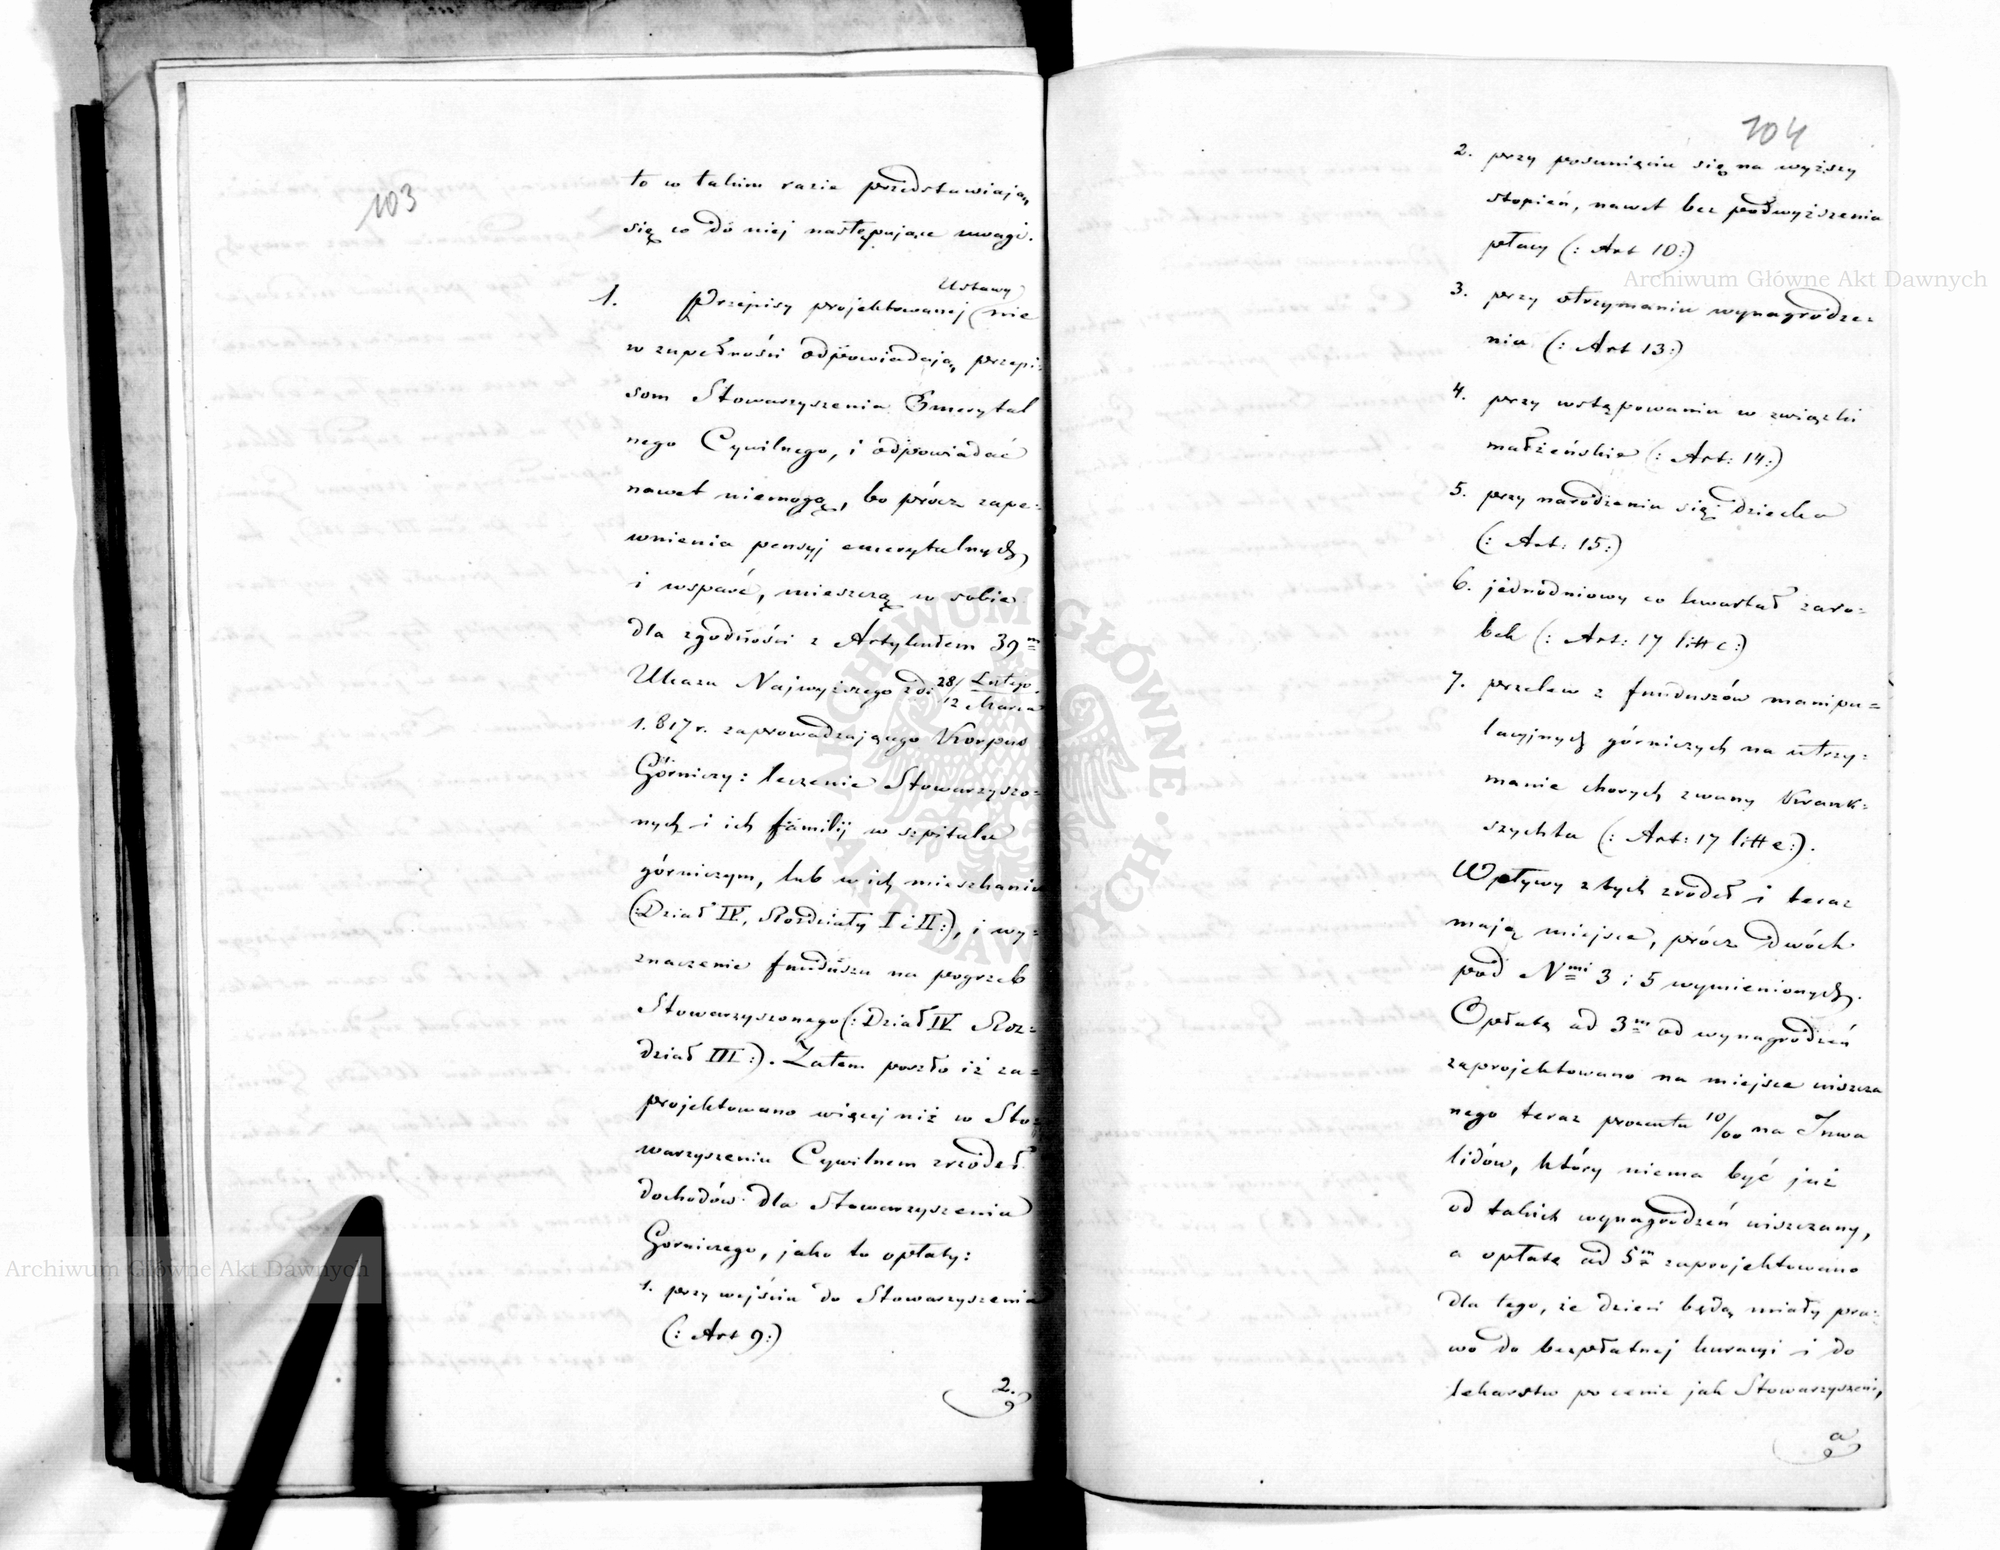 103
to w takim razie przedstawiają
się co do niej następujące uwagi.
Ustawy
1. Przepisy projektowanej nie
w zupełności odpowiadają przepi:
som Stowarzyszenia Emerytal
nego Cywilnego, i odpowiadać
nawet niemogą, bo prócz zape:
wnienia pensyj emerytalnych,
i wsparć, mieszczą w sobie
dla zgodności z Artykułem 39m
Ukazu Najwyższego z d: 28/12 Lutego/Marca
1.817 r. zaprowadzającego Korpus
Górniczy: leczenie Stowarzyszo:
nych i ich familij w szpitalu
górniczym, lub w ich mieszkaniu
(: Dział IV, Rozdziały I i II:), i wy:
znaczenie funduszu na pogrzeb
Stowarzyszonego (: Dział IV Roz:
dział III:). Zatem poszło iż za:
projektowano więcej niż w Sto:
warzyszeniu Cywilnem zrzódeł
dochodów dla Stowarzyszenia
Gorniczego, jako to opłaty:
1. przy wejściu do Stowarzyszenia
(: Art 9:)
2.
104
2. przy posunięciu się na wyższy
stopień, nawet bez podwyższenia
płacy (: Art 10:)
3. przy otrzymaniu wynagrodze:
nia (: Art 13:)
4. przy wstępowaniu w związki
małżeńskie (: Art: 14:)
5. przy narodzeniu się dziecka
(: Art: 15:)
6. jednodniowy co kwartał zaro:
bek (: Art: 17 litt c:)
7. przelew z funduszów manipu=
lacyjnych górniczych na utrzy:
manie chorych zwany Krank:
szychta (: Art: 17 litt e:).
Wpływy z tych zrodeł i teraz
mają miejsce, prócz dwóch
pod Nmi 3 i 5 wymienionych.
Opłatę ad 3m od wynagrodzeń
zaprojektowano na miejsce uiszcza
nego teraz procentu 10/00 na Inwa
lidów, który niema być już
od takich wynagrodzeń uiszczany,
a opłatę ad 5m zaprojektowano
dla tego, że dzieci będą miały pra:
wo do bezpłatnej kuracyi i do
lekarstw po cenie jak Stowarzyszeni,
a
Archiwum Główne Akt Dawnych
Archiwum Główne Akt Dawnych
ARCHIWUM GŁÓWNE AKT DAWNYCH